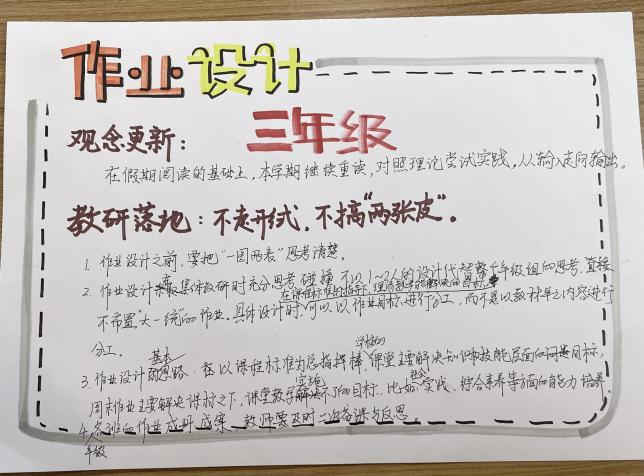 作业设计
三年级
观念更新:
在假期阅读的基础上,本学期继续重读,对照理论尝试实践,从输入走向输出。
教研落地:不走形式,不搞“两张皮”。
1. 作业设计之前,要把“一图两表”思考清楚。
2. 作业设计集体教研时充分思考碰撞,不以1~2人的设计代替整个年级组的思考,直接
在课程标准的指导下,理清
不布置“大一统”的作业。具体设计时,可以以作业目标进行分工,而不是以教材单元内容进行
分工。
基本 学校的
3. 作业设计的思路:在以课程标准为总指挥棒,课堂主要解决知识和技能层面的问题目标,
实施 社会
周末作业主要解决课标之下,课堂教学解决不了的目标,比如实践、综合素养等方面的能力培养
4. 各班的作业成册成案,教师要及时二次备课与反思。
年级